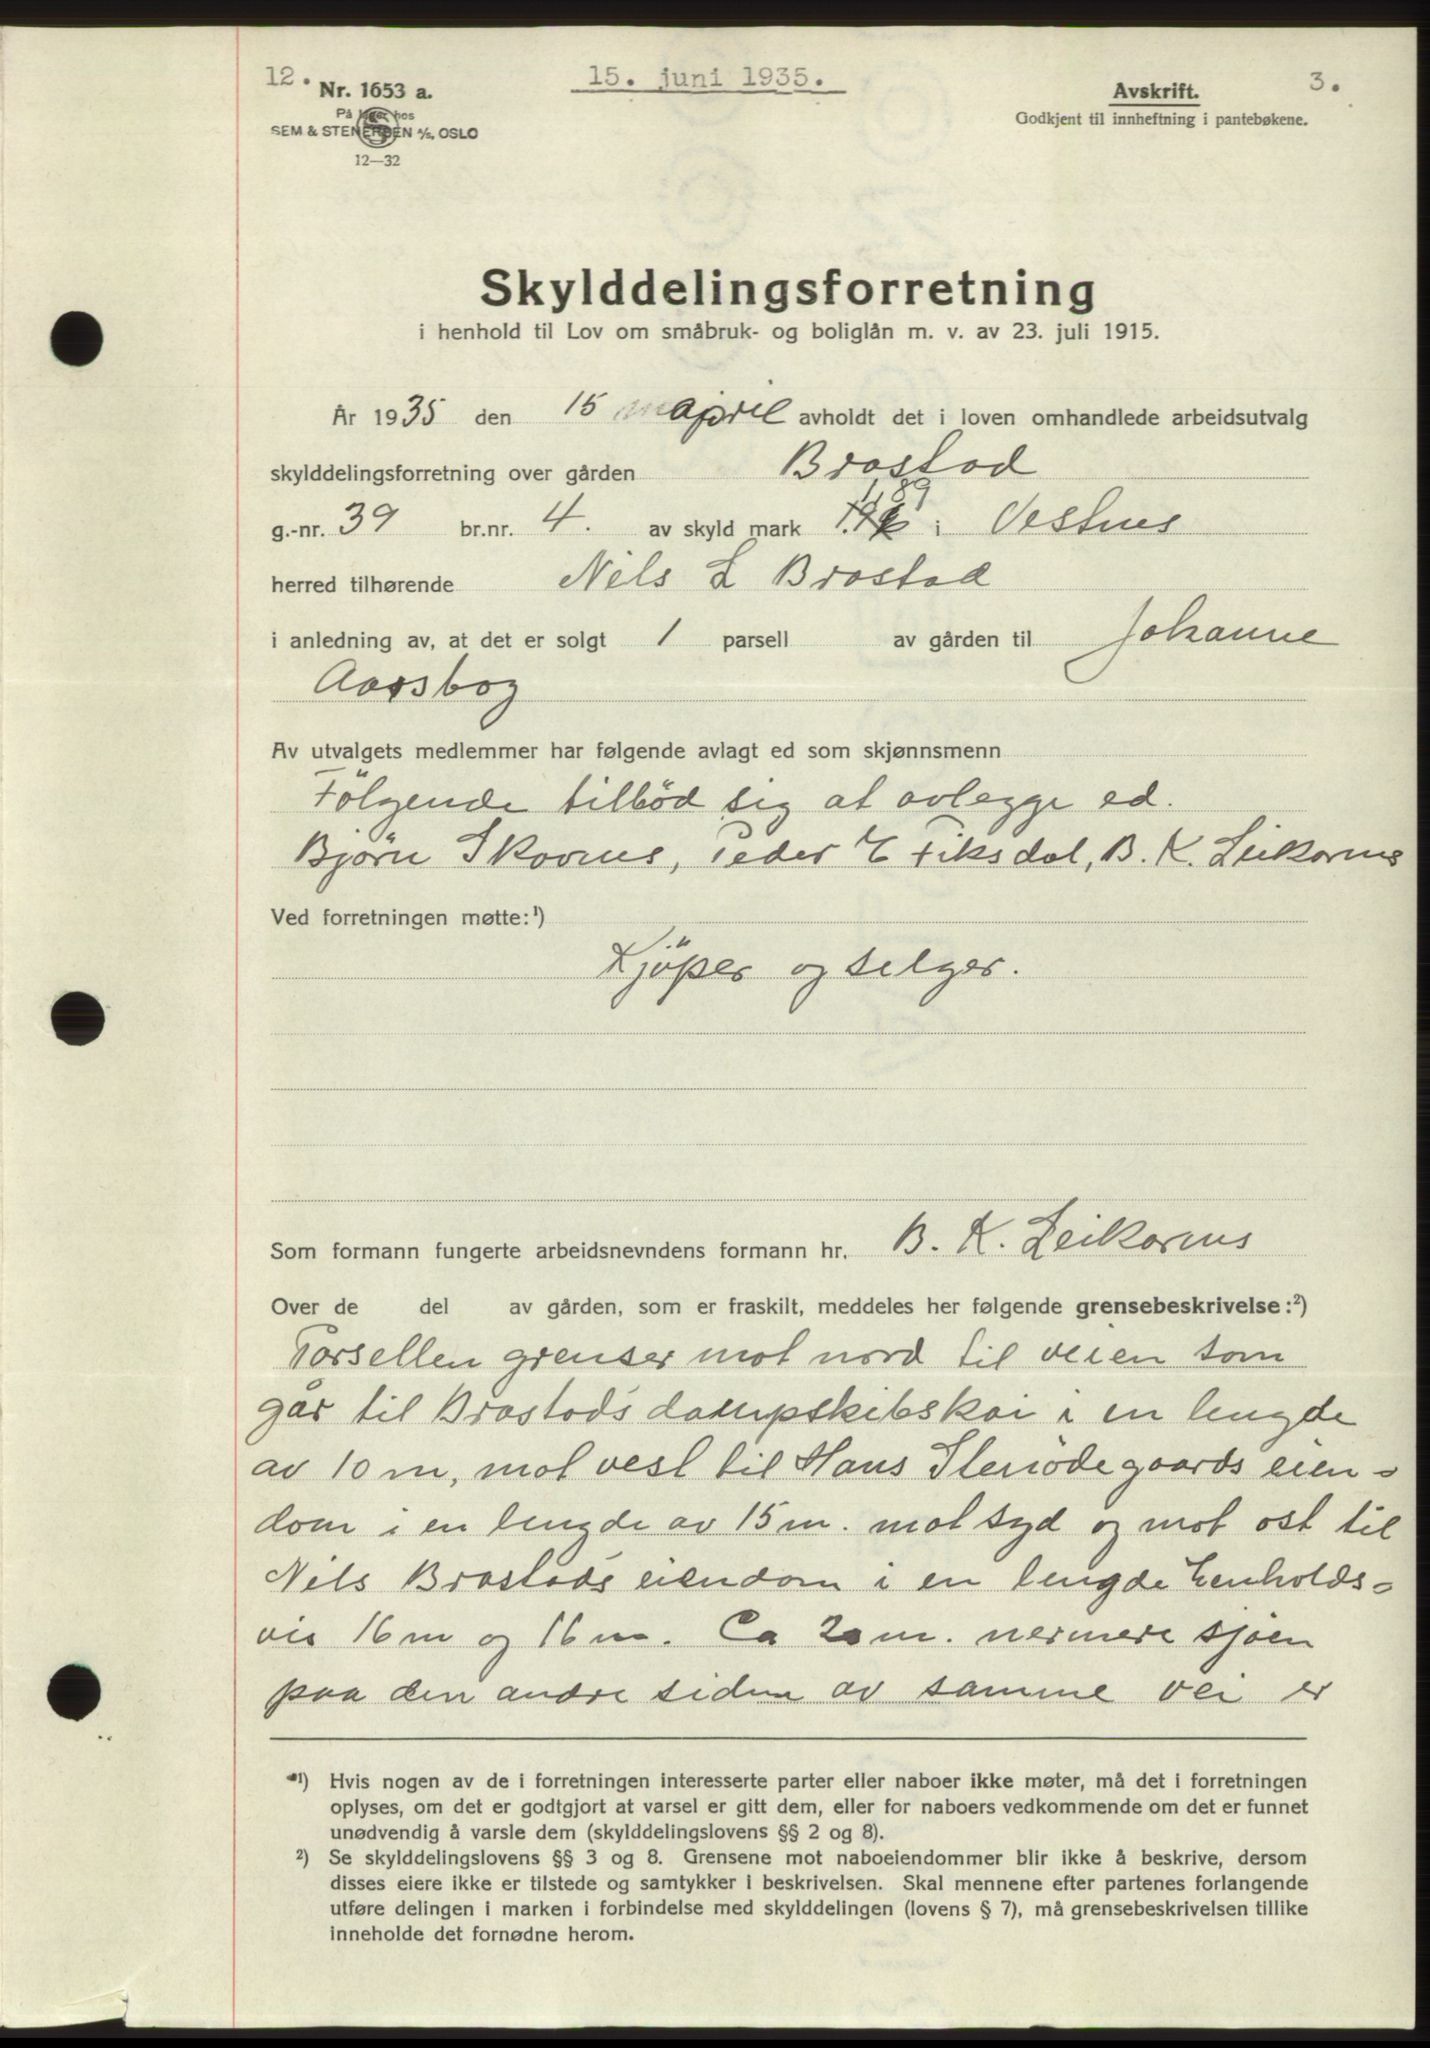 12.
15. juni 1935.
3.
Nr. 1653 a.
På lager hos
SEM & STENERSEN A/S, OSLO
12—32
Avskrift.
Godkjent til innheftning i pantebøkene.
Skylddelingsforretning
i henhold til Lov om småbruk- og boliglån m. v. av 23. juli 1915.
År 1935 den 15 april avholdt det i loven omhandlede arbeidsutvalg
skylddelingsforretning over gården Brastad
g.-nr. 39 br.nr. 4. av skyld mark 1,89 i Vestnes
herred tilhørende Nils L Brastad
i anledning av, at det er solgt 1 parsell av gården til Johanne
Aarsbog
Av utvalgets medlemmer har følgende avlagt ed som skjønnsmenn
Følgende tilbød sig at avlegge ed.
Bjørn Skornes, Peder E Fiksdal, B. K. Leikarnes
Ved forretningen møtte:¹)
Kjøper og selger.
Som formann fungerte arbeidsnevndens formann hr. B. K. Leikarnes
Over de del av gården, som er fraskilt, meddeles her følgende grensebeskrivelse:²)
Parsellen grenser mot nord til veien som
går til Brastads dampskibskai i en lengde
av 10 m, mot vest til Hans Stenødegaards eien-
dom i en lengde av 15 m. mot syd og mot ost til
Nils Brastads eiendom i en lengde henholds-
vis 16 m og 16 m. Ca 20 m. nermere sjøen
paa den andre siden av samme vei er
¹) Hvis nogen av de i forretningen interesserte parter eller naboer ikke møter, må det i forretningen
oplyses, om det er godtgjort at varsel er gitt dem, eller for naboers vedkommende om det er funnet
unødvendig å varsle dem (skylddelingslovens §§ 2 og 8).
²) Se skylddelingslovens §§ 3 og 8. Grensene mot naboeiendommer blir ikke å beskrive, dersom
disses eiere ikke er tilstede og samtykker i beskrivelsen. Skal mennene efter partenes forlangende
utføre delingen i marken i forbindelse med skylddelingen (lovens § 7), må grensebeskrivelsen tillike
inneholde det fornødne herom.